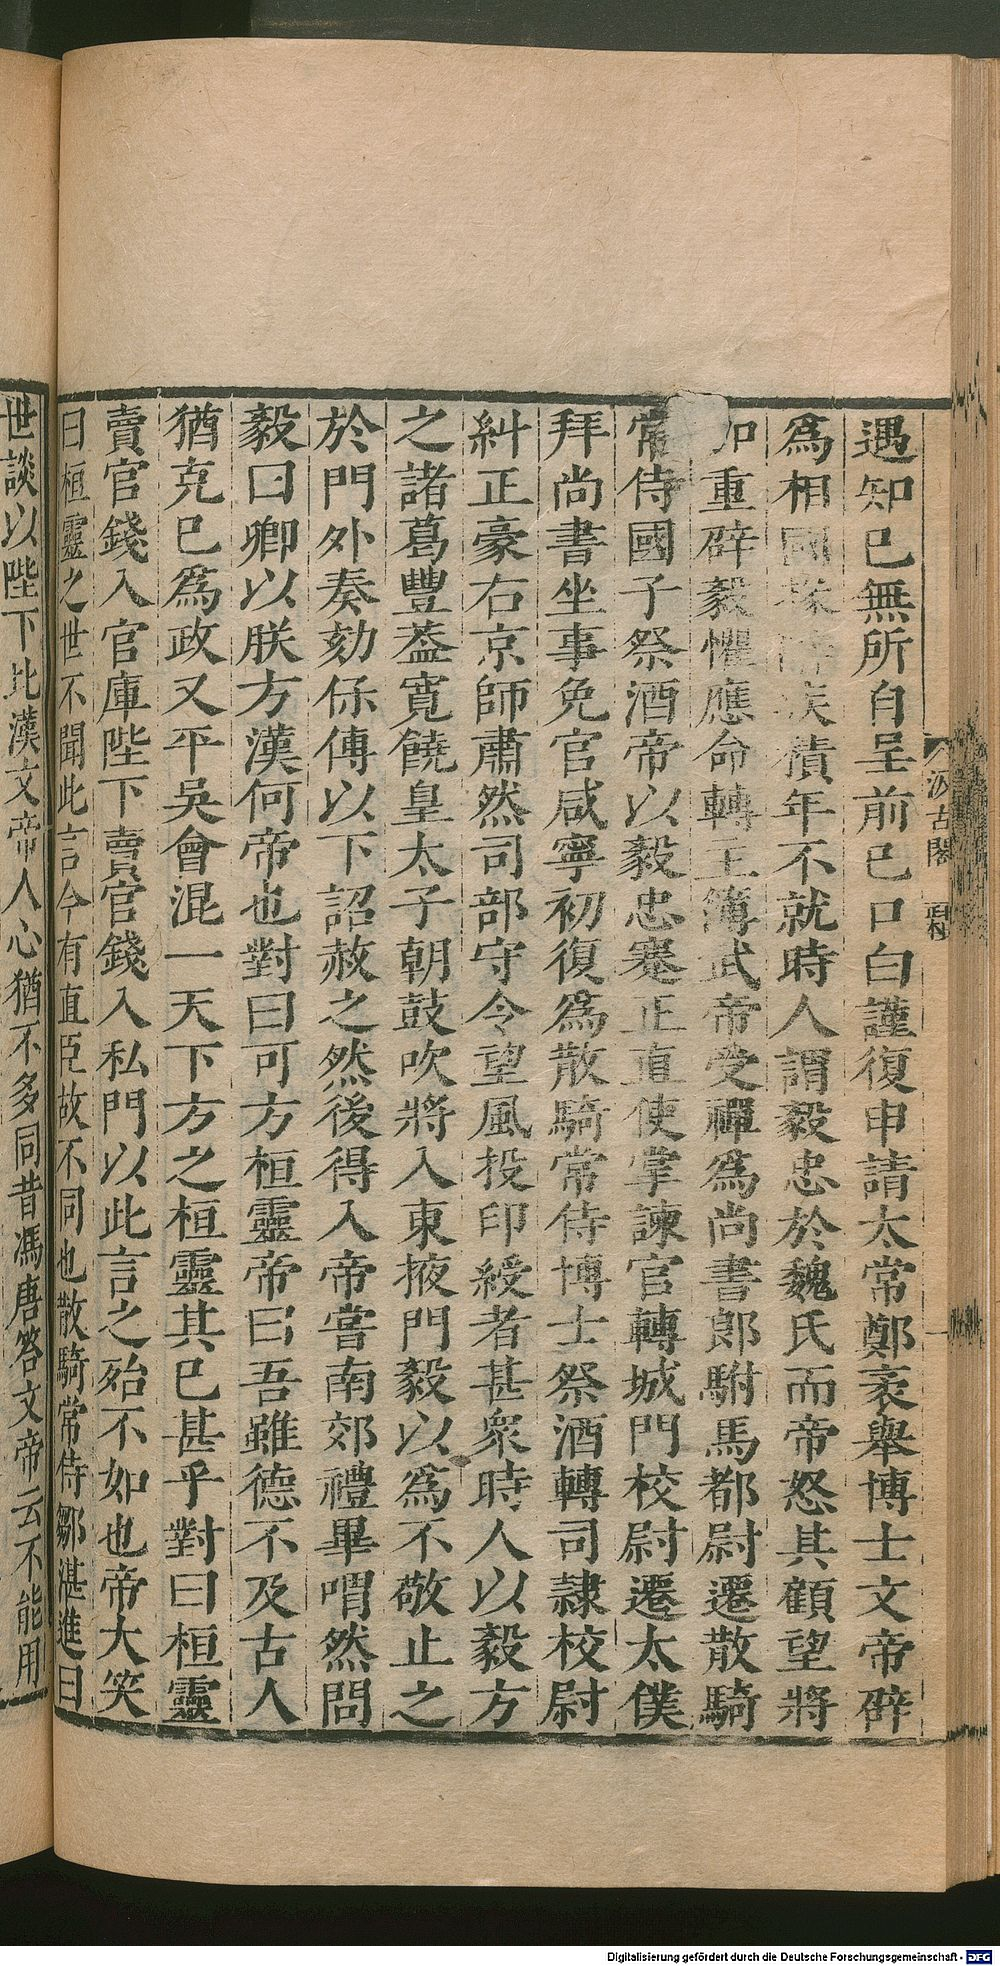 遇知已無所自呈前已口白謹復申請太常鄭袤舉博士文帝辟
爲相國掾辭疾積年不就時人謂毅忠於魏氏而帝怒其顧望將
加重辟毅懼應命轉主簿武帝受禪爲尚書郎駙馬都尉遷散騎
常侍國子祭酒帝以毅忠蹇正直使掌諫官轉城門校尉遷太僕
拜尚書坐事免官咸寧初復爲散騎常侍博士祭酒轉司隷校尉
糾正豪右京師肅然司部守令望風投印綬者甚衆時人以毅方
之諸葛豐蓋寬饒皇太子朝鼓吹將入東掖門毅以爲不敬止之
於門外奏劾保傅以下詔赦之然後得入帝嘗南郊禮畢喟然問
毅曰卿以朕方漢何帝也對曰可方桓靈帝曰吾雖德不及古人
猶克已爲政又平吳會混一天下方之桓靈其已甚乎對曰桓靈
賣官錢入官庫陛下賣官錢入私門以此言之殆不如也帝大笑
曰桓靈之世不聞此言今有直臣故不同也散騎常侍鄒湛進曰
世談以陛下比漢文帝人心猶不多同昔馮唐答文帝云不能用
汲古閣
Digitalisierung gefördert durch die Deutsche Forschungsgemeinschaft - DFG